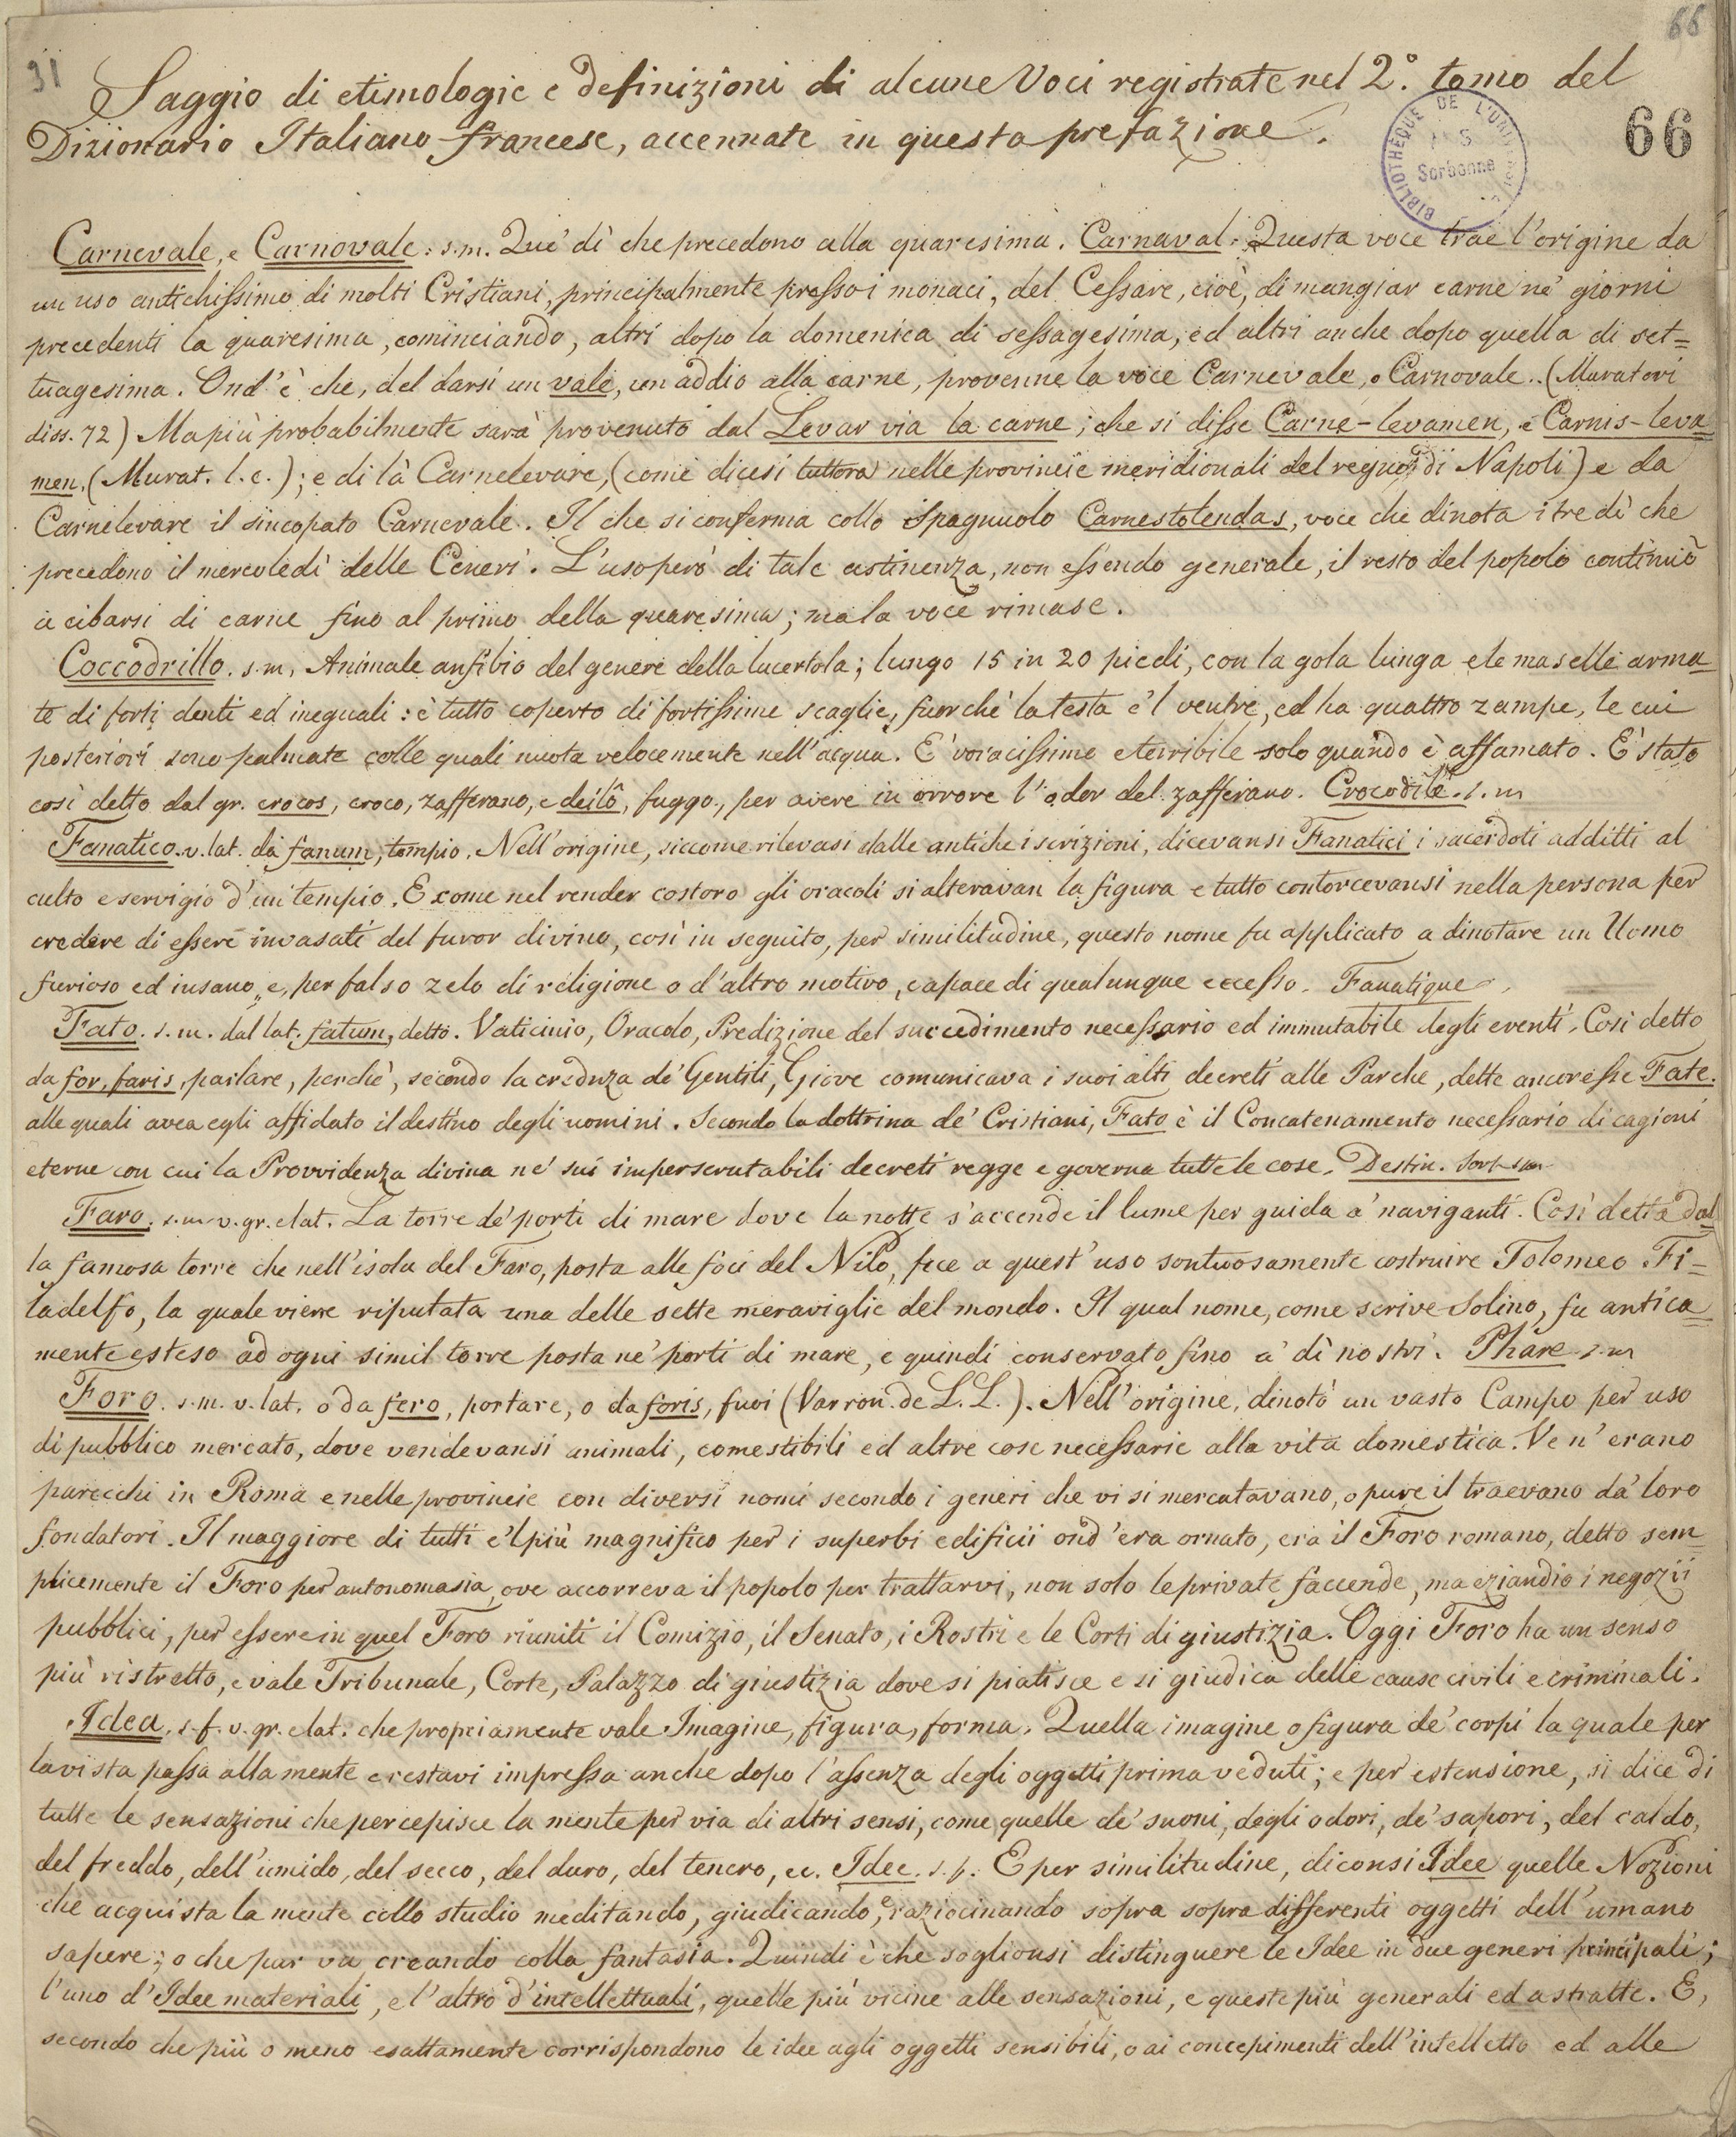 66
31
Saggio di etimologie e definizioni di alcune Voci registrate nel 2.° tomo del
Dizionario Italiano-francese, accennate in questa prefazione.
66
BIBLIOTHÈQUE DE L'UNI
Sorbonne
Carnevale, e Carnovale: s.m. Que' dì che precedono alla quaresima. Carnaval. Questa voce trae l'origine da
un uso antichissimo di molti Cristiani, principalmente presso i monaci, del Cessare, cioè, di mangiar carne ne' giorni
precedenti la quaresima, cominciando, altri dopo la domenica di sessagesima, ed altri anche dopo quella di set=
tuagesima. Ond'è che, del darsi un vale, un addio alla carne, provenne la voce Carnevale, o Carnovale. (Muratori
diss. 72) Ma più probabilmente sarà provenuto dal Levar via la carne; che si disse Carne-levamen, e Carnis-leva
men, (Murat. l. c.); e di là Carnelevare, (come dicesi tuttora nelle provincie meridionali del regno di Napoli) e da
Carnelevare il sincopato Carnevale. Il che si conferma collo Spagnuolo Carnestolendas, voce che dinota i tre dì che
precedono il mercoledì delle Ceneri. L'uso però di tale astinenza, non essendo generale, il resto del popolo continuò
a cibarsi di carne fino al primo della quaresima; ma la voce rimase.
Coccodrillo. s.m. Animale anfibio del genere della lucertola; lungo 15 in 20 piedi, con la gola lunga e le maselle arma
te di forti denti ed ineguali: è tutto coperto di fortissime scaglie, fuorchè la testa e 'l ventre, ed ha quattro zampe, le cui
posteriori sono palmate colle quali nuota velocemente nell'acqua. E' voracissimo e terribile solo quando è affamato. E' stato
così detto dal gr. crocos, croco, zafferano, e deilô, fuggo, per avere in orrore l'odor del zafferano. Crocodile. s.m
Fanatico. v. lat. da fanum, tempio. Nell'origine, siccome rilevasi dalle antiche iscrizioni, dicevansi Fanatici i sacerdoti additti al
culto e servigio d'un tempio. E come nel render costoro gli oracoli si alteravan la figura e tutto contorcevansi nella persona per
credere di essere invasati del furor divino, così in seguito, per similitudine, questo nome fu applicato a dinotare un Uomo
furioso ed insano, e, per falso zelo di religione o d'altro motivo, capace di qualunque eccesso. Fanatique.
Fato. s.m. dal lat. fatum, detto. Vaticinio, Oracolo, Predizione del succedimento necessario ed immutabile degli eventi. Così detto
da for, faris, parlare, perchè, secondo la credenza de' Gentili, Giove comunicava i suoi alti decreti alle Parche, dette ancor esse Fate.
alle quali avea egli affidato il destino degli uomini. Secondo la dottrina de' Cristiani, Fato è il Concatenamento necessario di cagioni
eterne con cui la Provvidenza divina ne' sui imperscrutabili decreti regge e governa tutte le cose. Destin. Sort
Faro. s.m. v. gr. e lat. La torre de' porti di mare dove la notte s'accende il lume per guida a' naviganti. Così detta dal
la famosa torre che nell'isola del Faro, posta alle foci del Nilo, fece a quest'uso sontuosamente costruire Tolomeo Fi=
ladelfo, la quale viene riputata una delle sette meraviglie del mondo. Il qual nome, come scrive Solino, fu antica
mente esteso ad ogni simil torre posta ne' porti di mare, e quindi conservato fino a' dì nostri. Phare s.m
Foro. s.m. v. lat. o da fero, portare, o da foris, fuori (Varron. de L. L.). Nell'origine, dinotò un vasto Campo per uso
di pubblico mercato, dove vendevansi animali, comestibili ed altre cose necessarie alla vita domestica. Ve n'erano
parecchi in Roma e nelle provincie con diversi nomi secondo i generi che vi si mercatavano, o pure il traevano da' loro
fondatori. Il maggiore di tutti e 'l più magnifico per i superbi edificii ond'era ornato, era il Foro romano, detto sem=
plicemente il Foro per antonomasia, ove accorreva il popolo per trattarvi, non solo le private faccende, ma eziandio i negozii
pubblici, per essere in quel Foro riuniti il Comizio, il Senato, i Rostri e le Corti di giustizia. Oggi Foro ha un senso
più ristretto, e vale Tribunale, Corte, Palazzo di giustizia dove si piatisce e si giudica delle cause civili e criminali.
Idea. s.f. v. gr. e lat. che propriamente vale Imagine, figura, forma. Quella imagine o figura de' corpi la quale per
la vista passa alla mente e restavi impressa anche dopo l'assenza degli oggetti prima veduti; e per estensione, si dice di
tutte le sensazioni che percepisce la mente per via di altri sensi, come quelle de' suoni, degli odori, de' sapori, del caldo,
del freddo, dell'umido, del secco, del duro, del tenero, ec. Idee. s.f. E per similitudine, diconsi Idee quelle Nozioni
che acquista la mente collo studio meditando, giudicando, e raziocinando sopra sopra differenti oggetti dell'umano
sapere; o che pur va creando colla fantasia. Quindi è che soglionsi distinguere le Idee in due generi principali;
l'uno d'Idee materiali, e l'altro d'intellettuali, quelle più vicine alle sensazioni, e queste più generali ed astratte. E,
secondo che più o meno esattamente corrispondono le idee agli oggetti sensibili, o ai concepimenti dell'intelletto ed alle